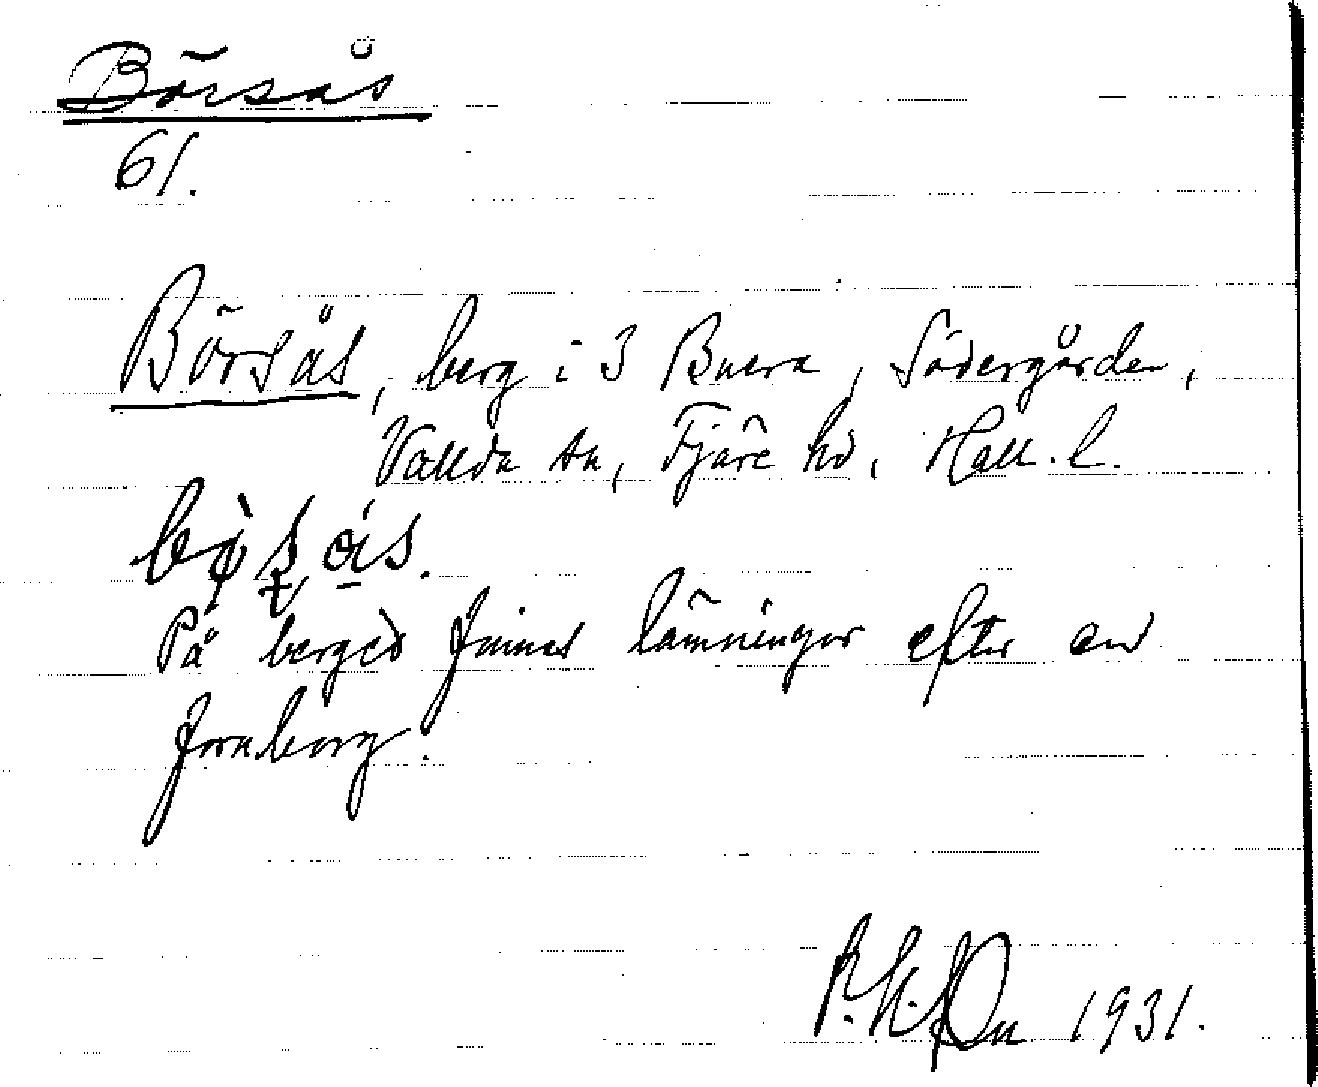 Börsås
61.
Börsås, berg i 3 Buera, Södergården,
Vallda sn, Fjäre hd, Hall. l.
På berget finnes lämningar efter en
fornborg.
1931.